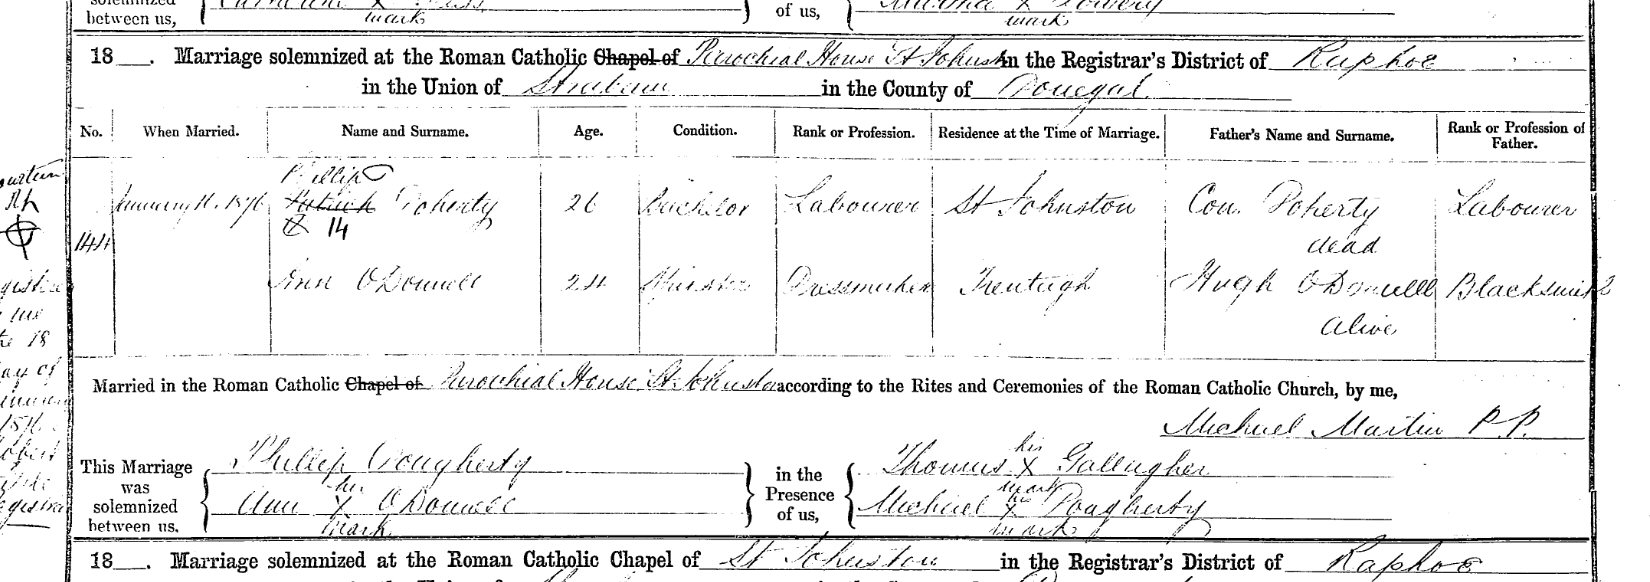 solemnized
between us,
mark
of us,
mark
18 . Marriage solemnized at the Roman Catholic Chapel of Parochial House St Johnston in the Registrar's District of Raphoe
in the Union of Strabane in the County of Donegal
No. When Married. Name and Surname. Age. Condition. Rank or Profession. Residence at the Time of Marriage. Father's Name and Surname. Rank or Profession of Father.
Phillip
144 January 1876 Patrick Doherty 26 Bachelor Labourer St Johnston Con. Doherty Labourer
14 dead
Ann O'Donnell 24 Spinster Dressmaker Trentagh Hugh O'Donnell Blacksmith
alive
Married in the Roman Catholic Chapel of Parochial House St Johnston according to the Rites and Ceremonies of the Roman Catholic Church, by me,
Michael Martin P.P.
This Marriage was solemnized between us. Phillip Dougherty in the Presence of us, Thomas his X mark Gallagher
Ann her X mark O'Donnell Michael his X mark Dougherty
18 . Marriage solemnized at the Roman Catholic Chapel of St Johnston in the Registrar's District of Raphoe